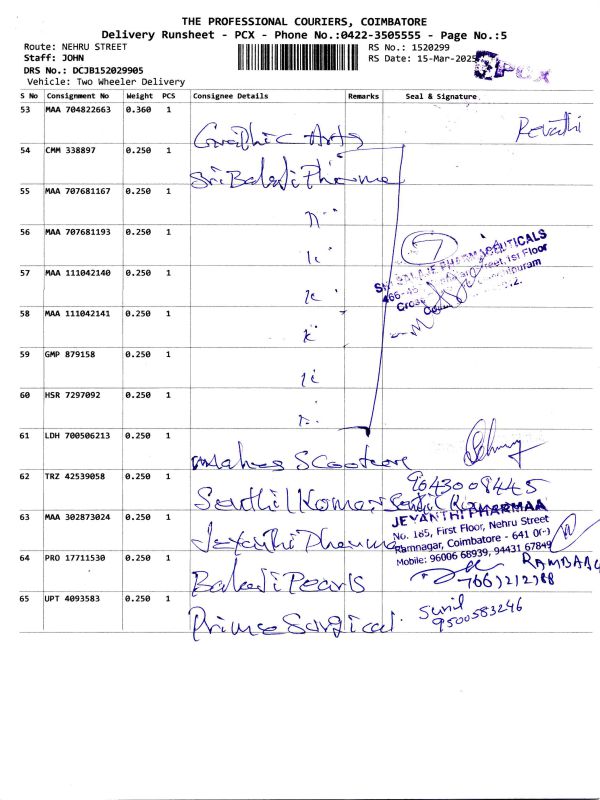 THE PROFESSIONAL COURIERS, COIMBATORE
Delivery Runsheet - PCX - Phone No.:0422-3505555 - Page No.:5
Route: NEHRU STREET
RS No.: 1520299
Staff: JOHN
RS Date: 15-Mar-2025
PCX
DRS No.: DCJB152029905
Vehicle: Two Wheeler Delivery
S No Consignment No Weight PCS Consignee Details Remarks Seal & Signature
53 MAA 704822663 0.360 1 Graphic Arts Revathi
54 CMM 338897 0.250 1 Sri Balaji Pharma
55 MAA 707681167 0.250 1
56 MAA 707681193 0.250 1
7
57 MAA 111042140 0.250 1
PHARMACEUTICALS
1st Floor
58 MAA 111042141 0.250 1
59 GMP 879158 0.250 1
60 HSR 7297092 0.250 1
61 LDH 700506213 0.250 1 Scooters
62 TRZ 42539058 0.250 1 Senthil Kumar
9043008445
63 MAA 302873024 0.250 1 Jeyanthi Pharma
JEYANTHI PHARMAA
No. 165, First Floor, Nehru Street
Ramnagar, Coimbatore - 641 0
Mobile: 96006 68939, 94431 67849
64 PRO 17711530 0.250 1 Balaji Pearls
65 UPT 4093583 0.250 1 Prime Surgical
Sunil
9500583246